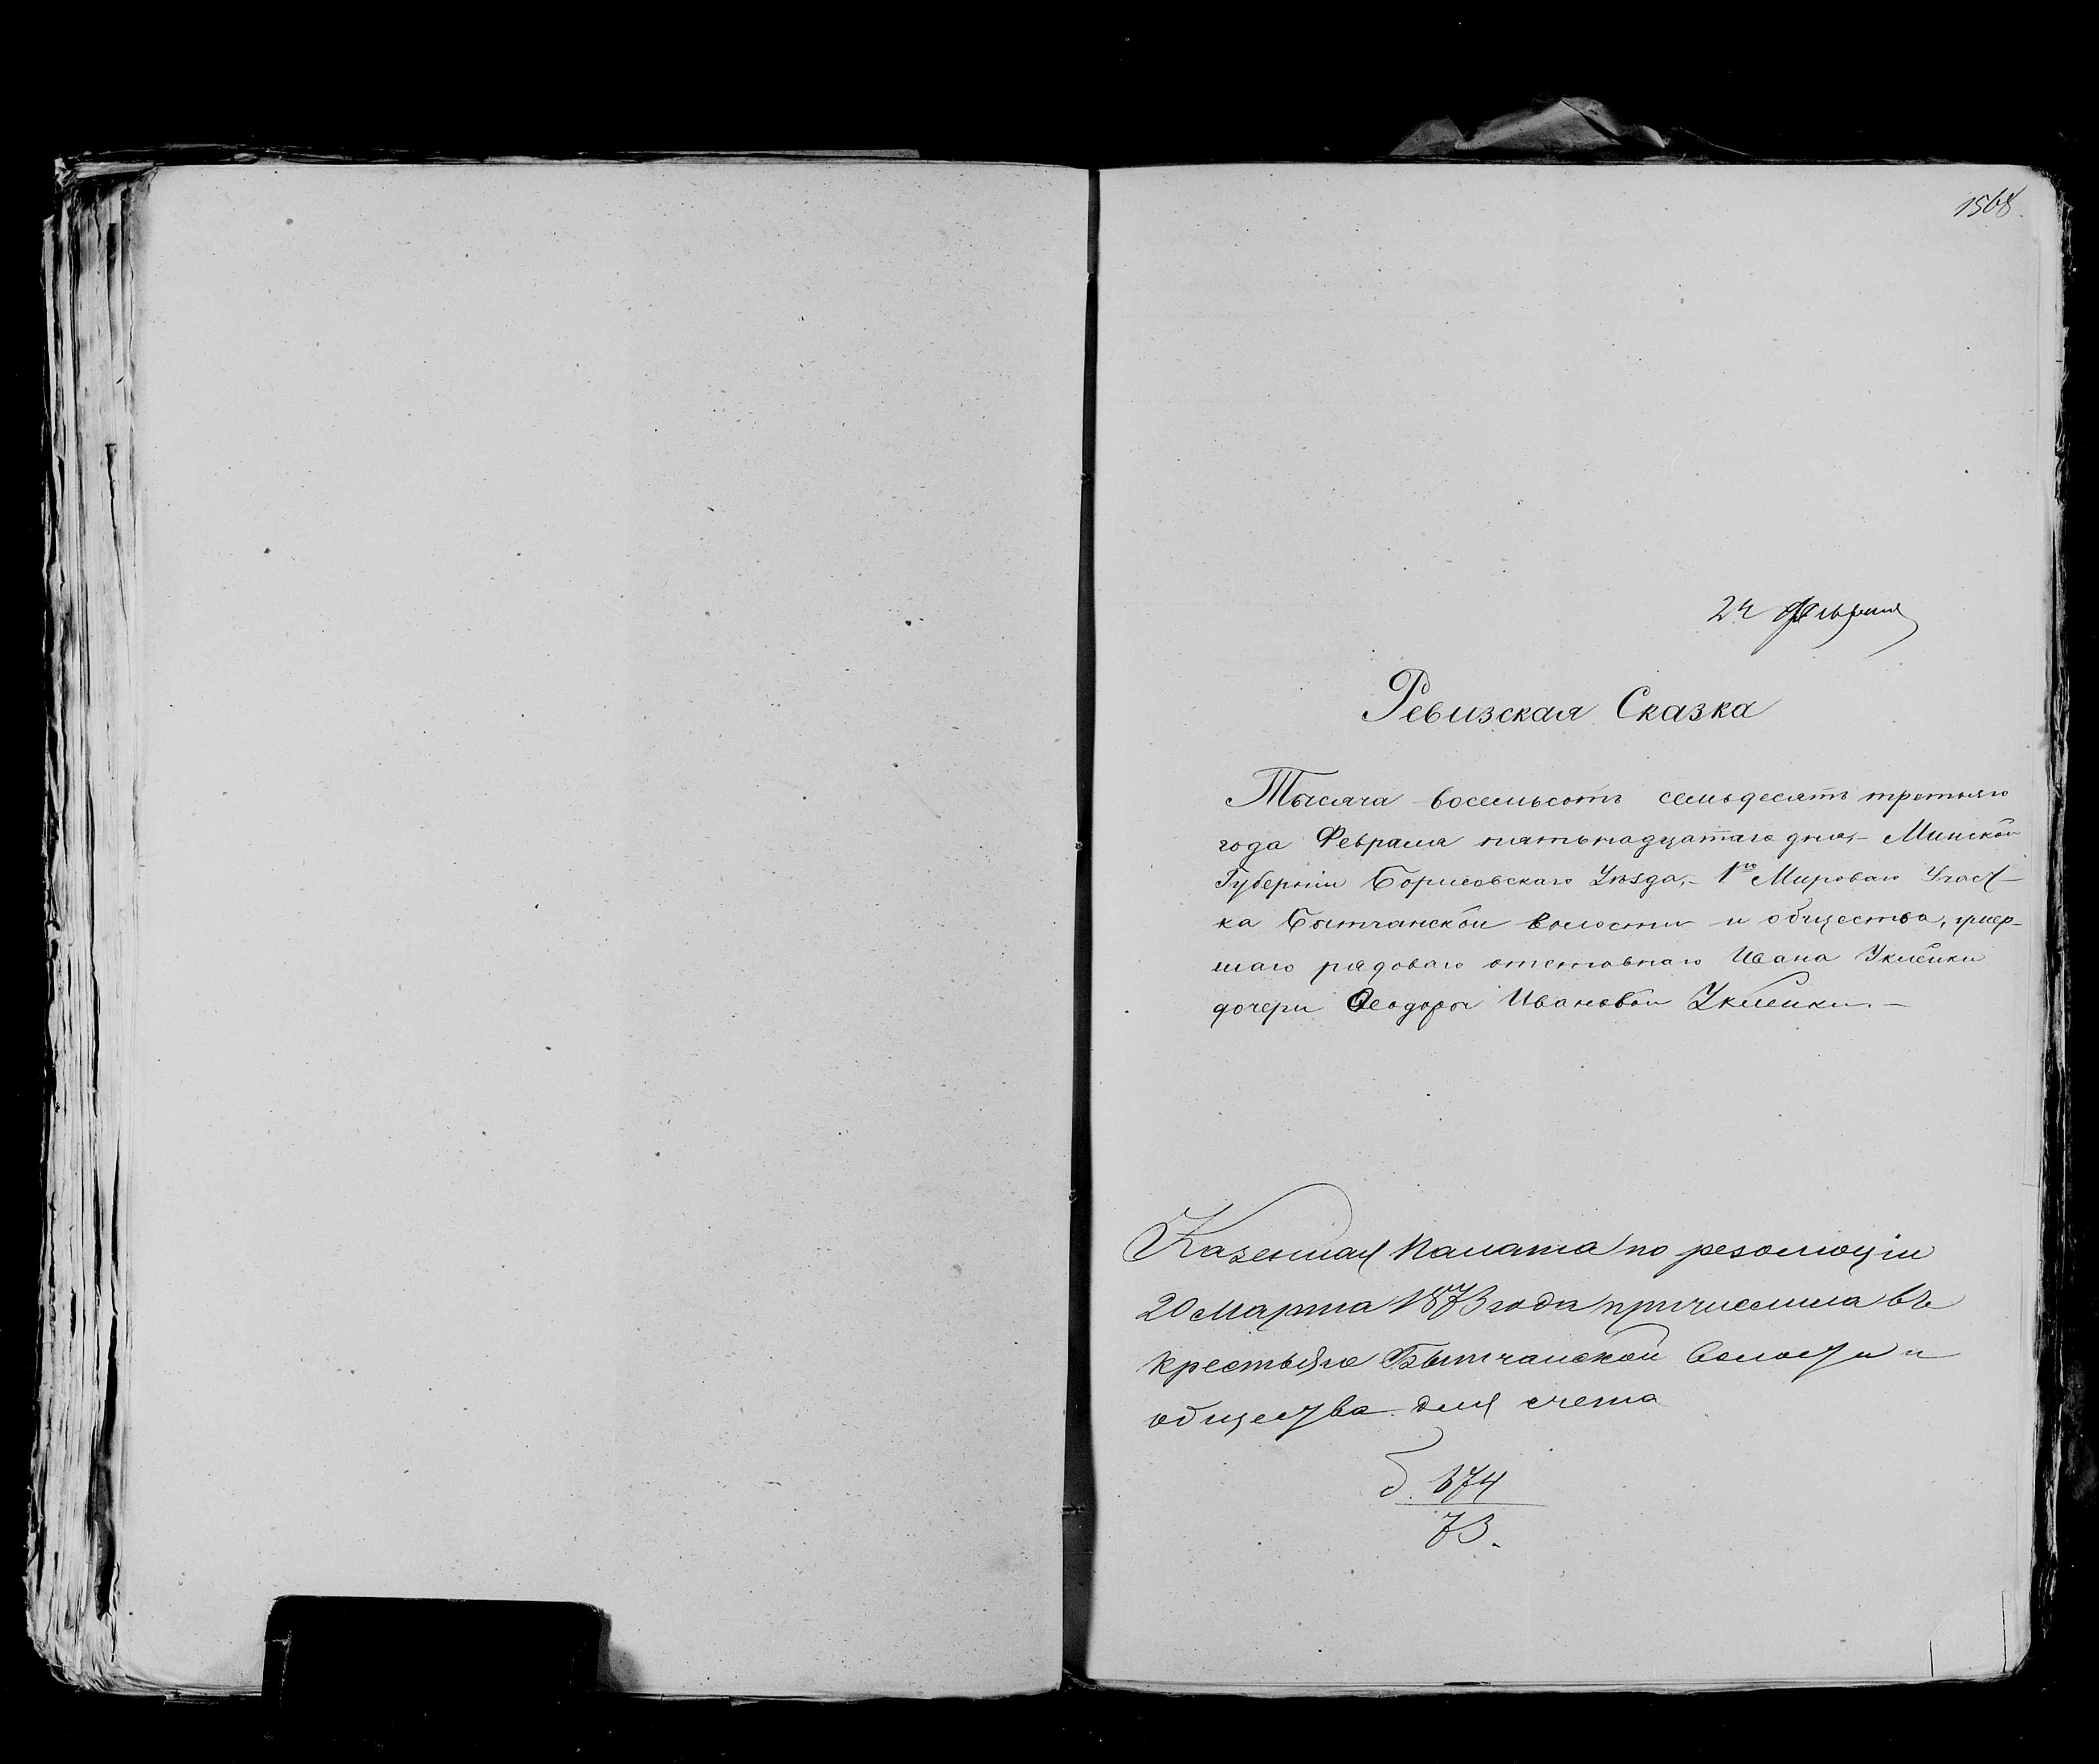 1568.
24 февраля
Ревизская Сказка
Тысяча восемьсотъ семьдесятъ третьяго
года Февраля пятьнадцатаго дня,- Минской
Губерніи Борисовскаго Уѣзда,- 1го Мироваго Участ-
ка Бытчанской волости и общества, умер-
шаго рядоваго отставнаго Ивана Уклейки
дочери Ѳеодоры Ивановой Уклейки.-
Казенная Палата по резолюціи
20 Марта 1873 года причислила въ
крестьяне Бытчанской волости и
общества для счета
874
73.